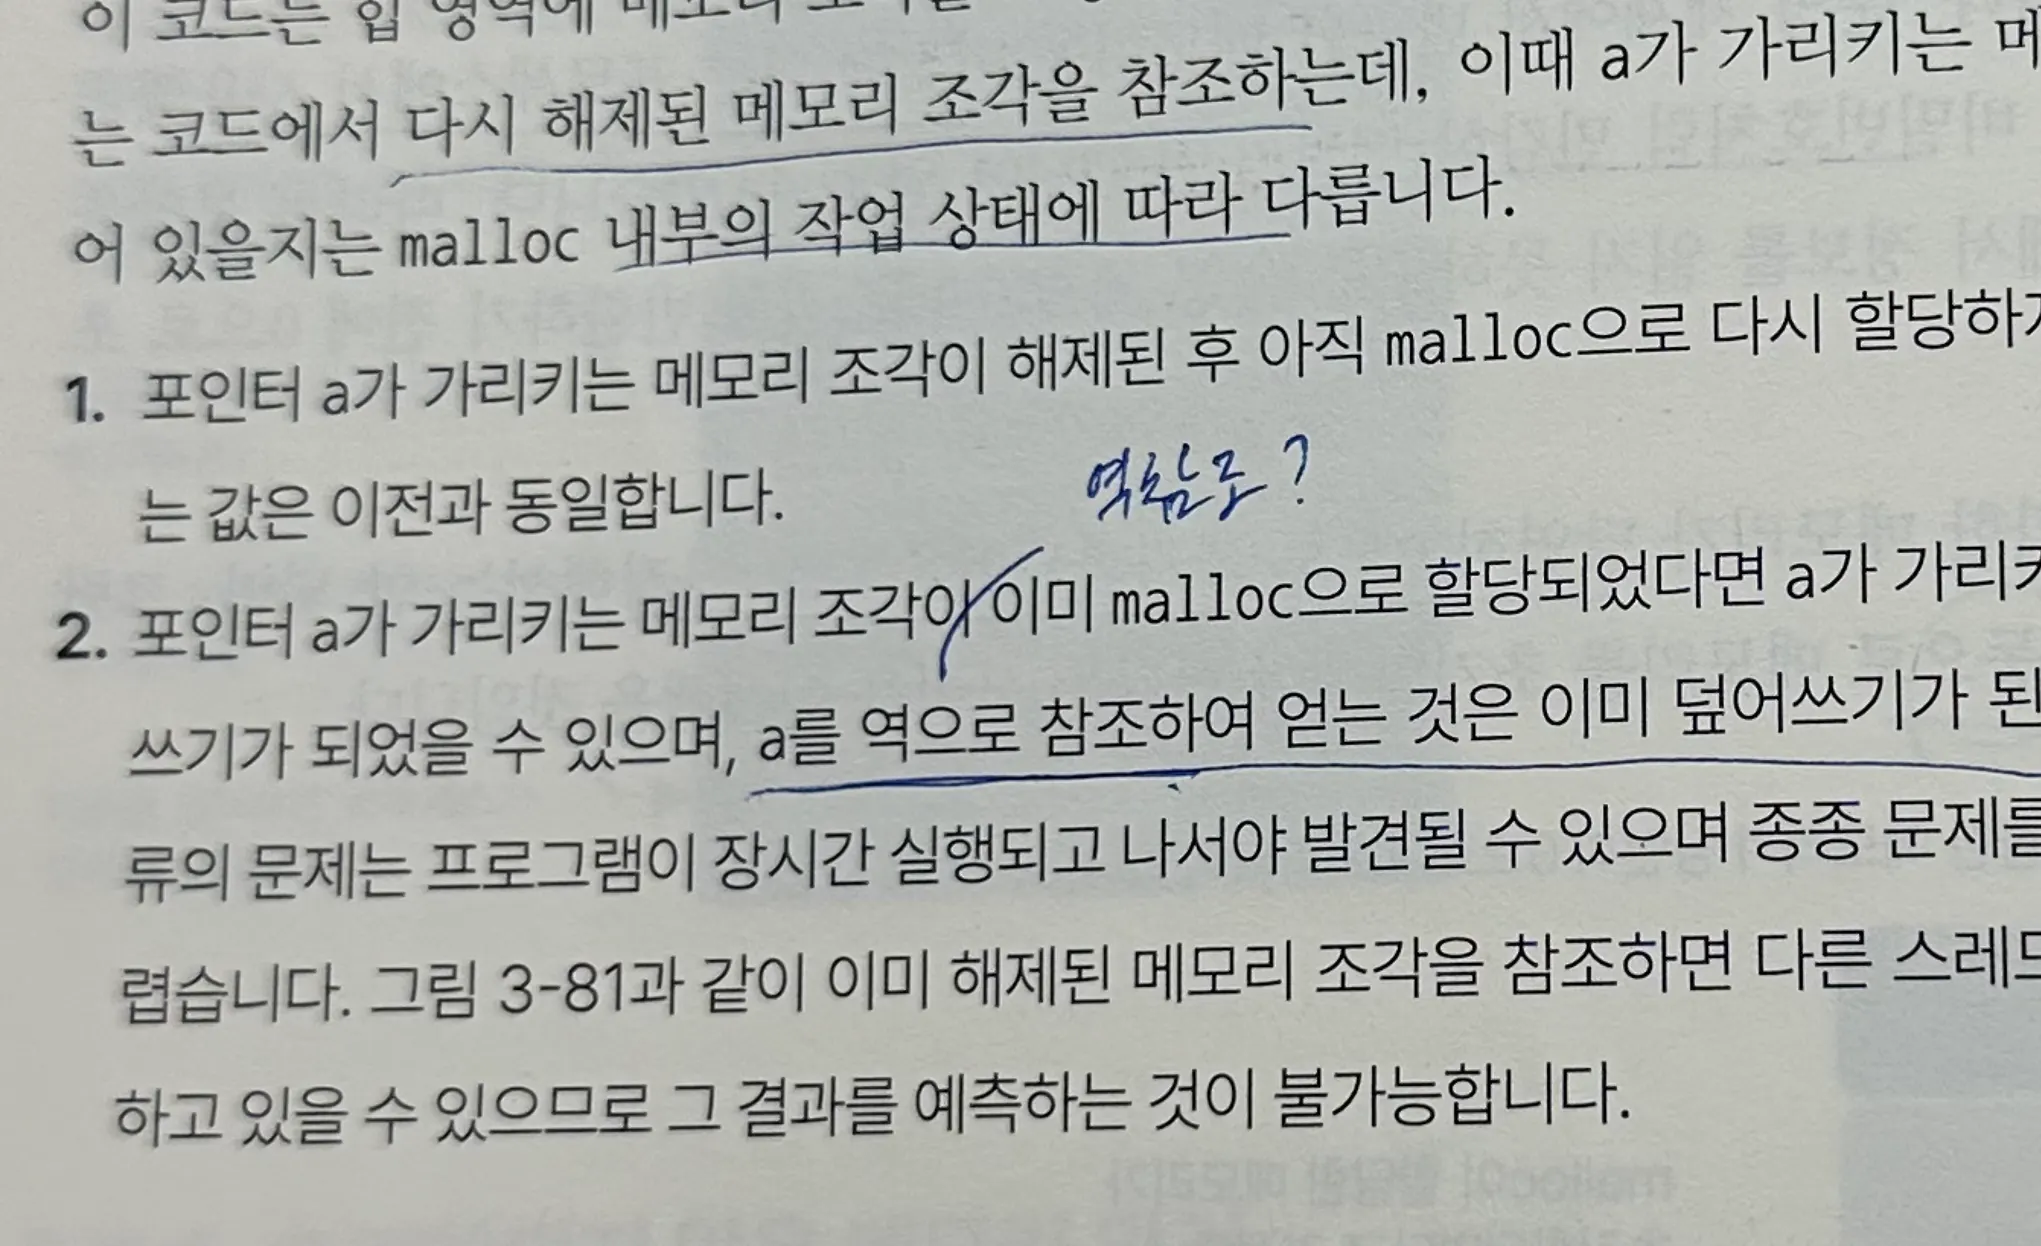 이 코드는 힙 영역에 메모리 조각을
는 코드에서 다시 해제된 메모리 조각을 참조하는데, 이때 a가 가리키는 메
어 있을지는 malloc 내부의 작업 상태에 따라 다릅니다.
1. 포인터 a가 가리키는 메모리 조각이 해제된 후 아직 malloc으로 다시 할당하지
는 값은 이전과 동일합니다.
역참조?
2. 포인터 a가 가리키는 메모리 조각이 이미 malloc으로 할당되었다면 a가 가리키
쓰기가 되었을 수 있으며, a를 역으로 참조하여 얻는 것은 이미 덮어쓰기가 된
류의 문제는 프로그램이 장시간 실행되고 나서야 발견될 수 있으며 종종 문제를
렵습니다. 그림 3-81과 같이 이미 해제된 메모리 조각을 참조하면 다른 스레드
하고 있을 수 있으므로 그 결과를 예측하는 것이 불가능합니다.